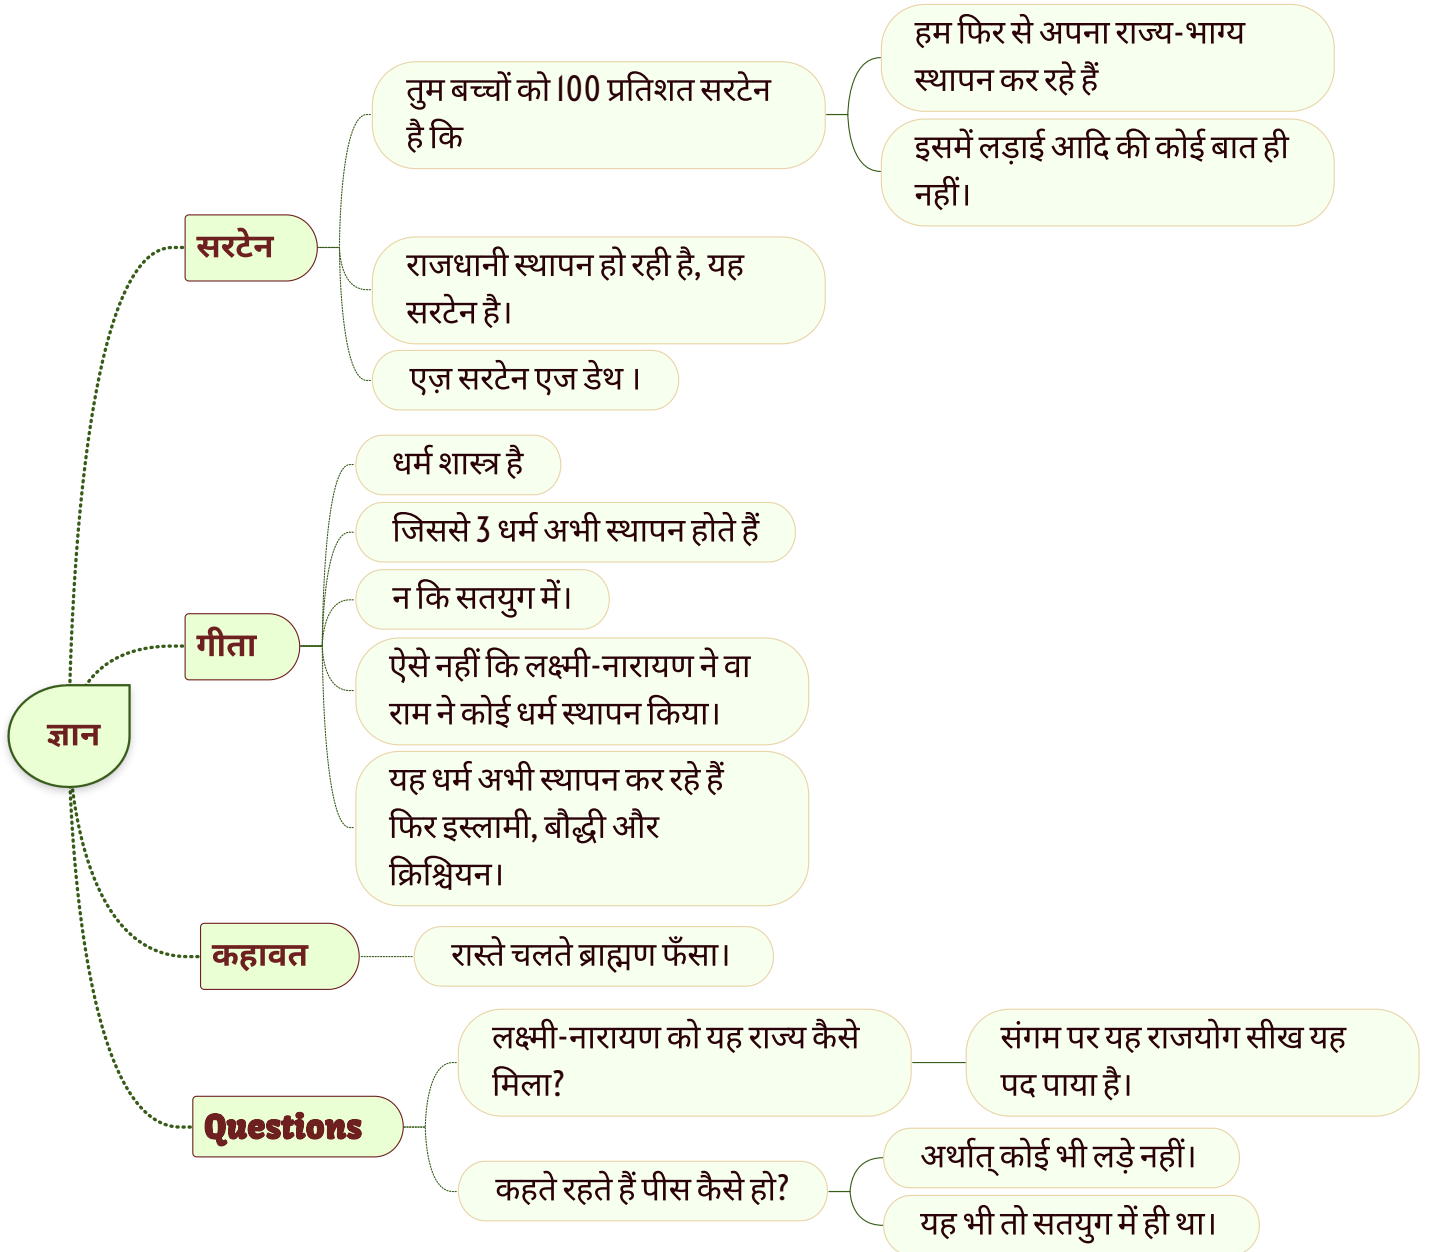 ज्ञान
सरटेन
तुम बच्चों को 100 प्रतिशत सरटेन
है कि
हम फिर से अपना राज्य-भाग्य
स्थापन कर रहे हैं
इसमें लड़ाई आदि की कोई बात ही
नहीं।
राजधानी स्थापन हो रही है, यह
सरटेन है।
एज़ सरटेन एज डेथ ।
गीता
धर्म शास्त्र है
जिससे 3 धर्म अभी स्थापन होते हैं
न कि सतयुग में।
ऐसे नहीं कि लक्ष्मी-नारायण ने वा
राम ने कोई धर्म स्थापन किया।
यह धर्म अभी स्थापन कर रहे हैं
फिर इस्लामी, बौद्धी और
क्रिश्चियन।
कहावत
रास्ते चलते ब्राह्मण फँसा।
Questions
लक्ष्मी-नारायण को यह राज्य कैसे
मिला?
संगम पर यह राजयोग सीख यह
पद पाया है।
कहते रहते हैं पीस कैसे हो?
अर्थात् कोई भी लड़े नहीं।
यह भी तो सतयुग में ही था।